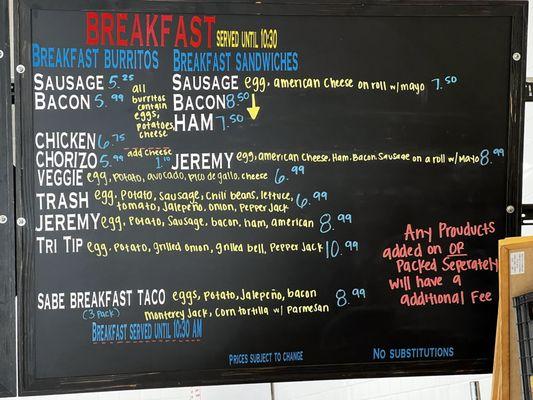 BREAKFAST SERVED UNTIL 10:30
BREAKFAST BURRITOS
SAUSAGE 5.25
BACON 5.99
all
burritos
contain
eggs,
potatoes,
cheese
CHICKEN 6.75
add cheese
CHORIZO 5.99
1.10
VEGGIE egg, potato, avocado, pico de gallo, cheese 6.99
TRASH egg, Potato, Sausage, Chili beans, lettuce,
tomato, Jalepeño, onion, PepperJack 6.99
JEREMY egg, Potato, Sausage, bacon, ham, american 8.99
TRI TIP egg, Potato, grilled onion, grilled bell, PepperJack 10.99
SABE BREAKFAST TACO eggs, potato, Jalepeño, bacon
(3 pack) Monterey Jack, Corn tortilla w/ Parmesan 8.99
BREAKFAST SERVED UNTIL 10:30 AM
BREAKFAST SANDWICHES
SAUSAGE egg, american cheese on roll w/mayo 7.50
BACON 8.50
HAM 7.50
JEREMY egg, american Cheese, Ham, Bacon, Sausage on a roll w/Mayo 8.99
Any Prouducts
added on OR
Packed Seperately
will have a
additional Fee
PRICES SUBJECT TO CHANGE
NO SUBSTITUTIONS